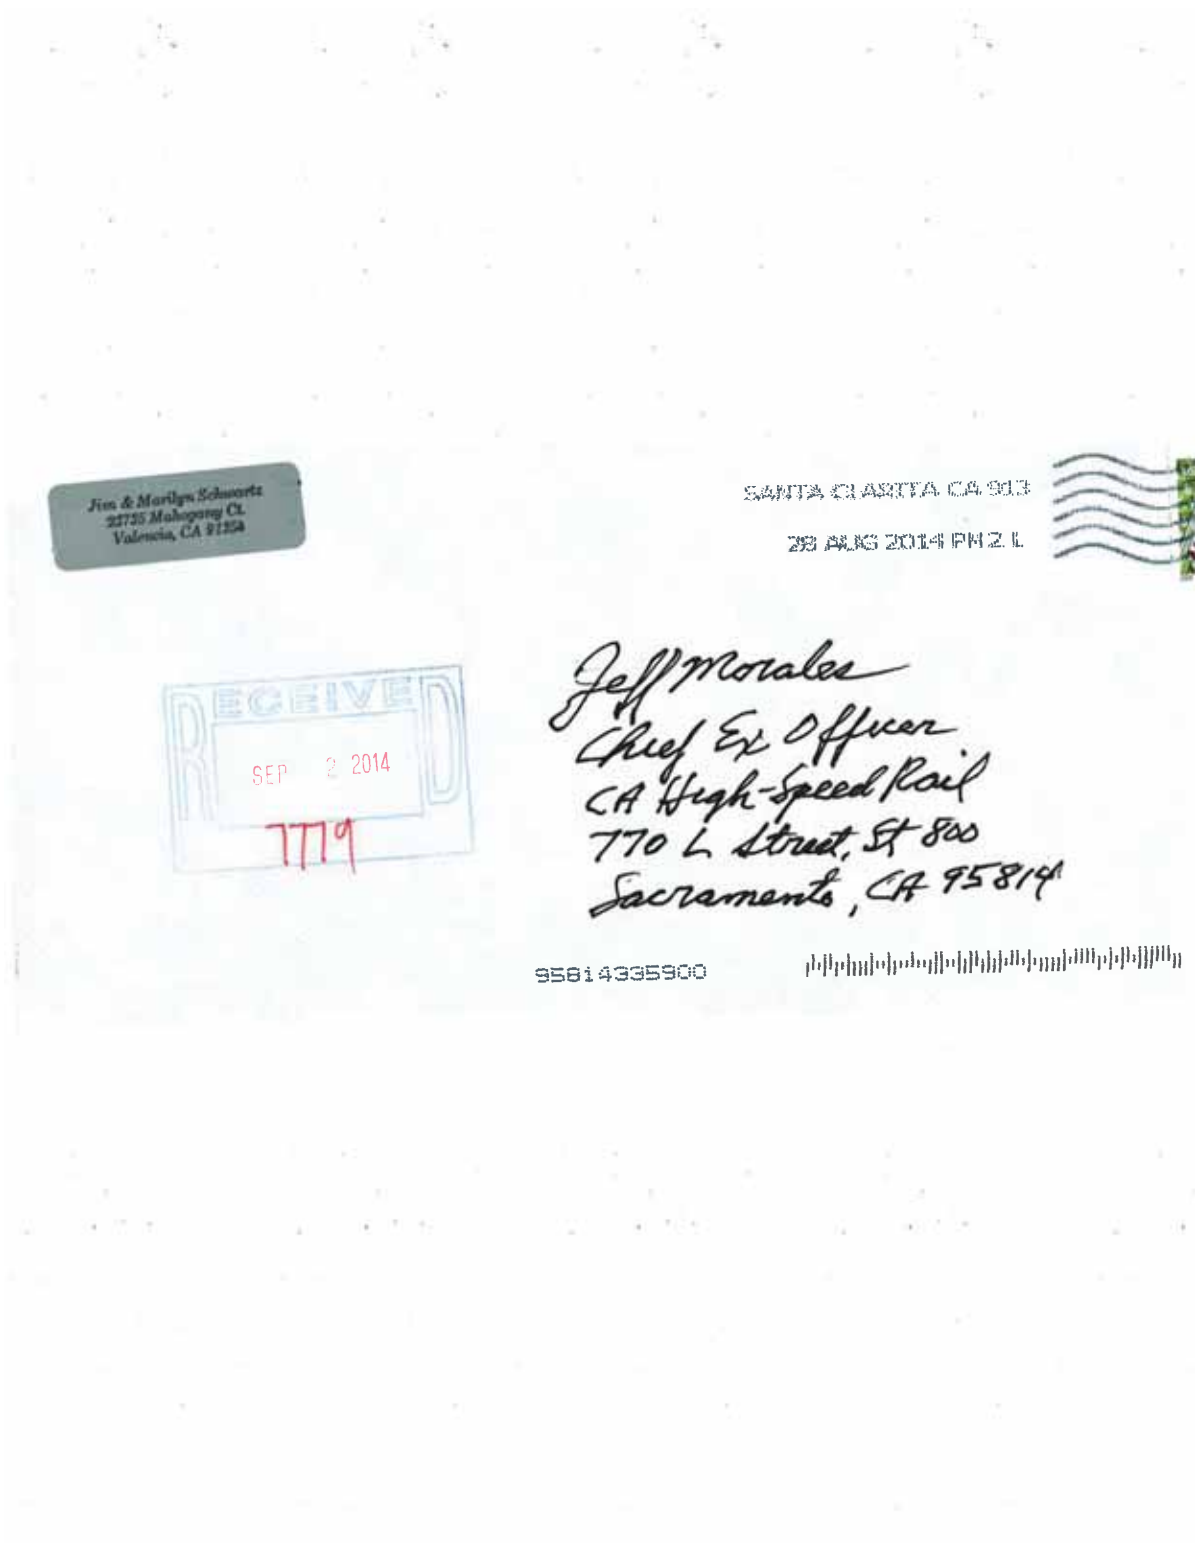 Jim & Marilyn Schwartz
23735 Mahogany Ct.
Valencia, CA 91354
SANTA CLARITA CA 913
28 AUG 2014 PM 2 L
RECEIVED
SEP 2 2014
7779
Jeff Morales
Chief Ex Officer
CA High-Speed Rail
770 L Street, St 800
Sacramento, CA 95814
95814335900